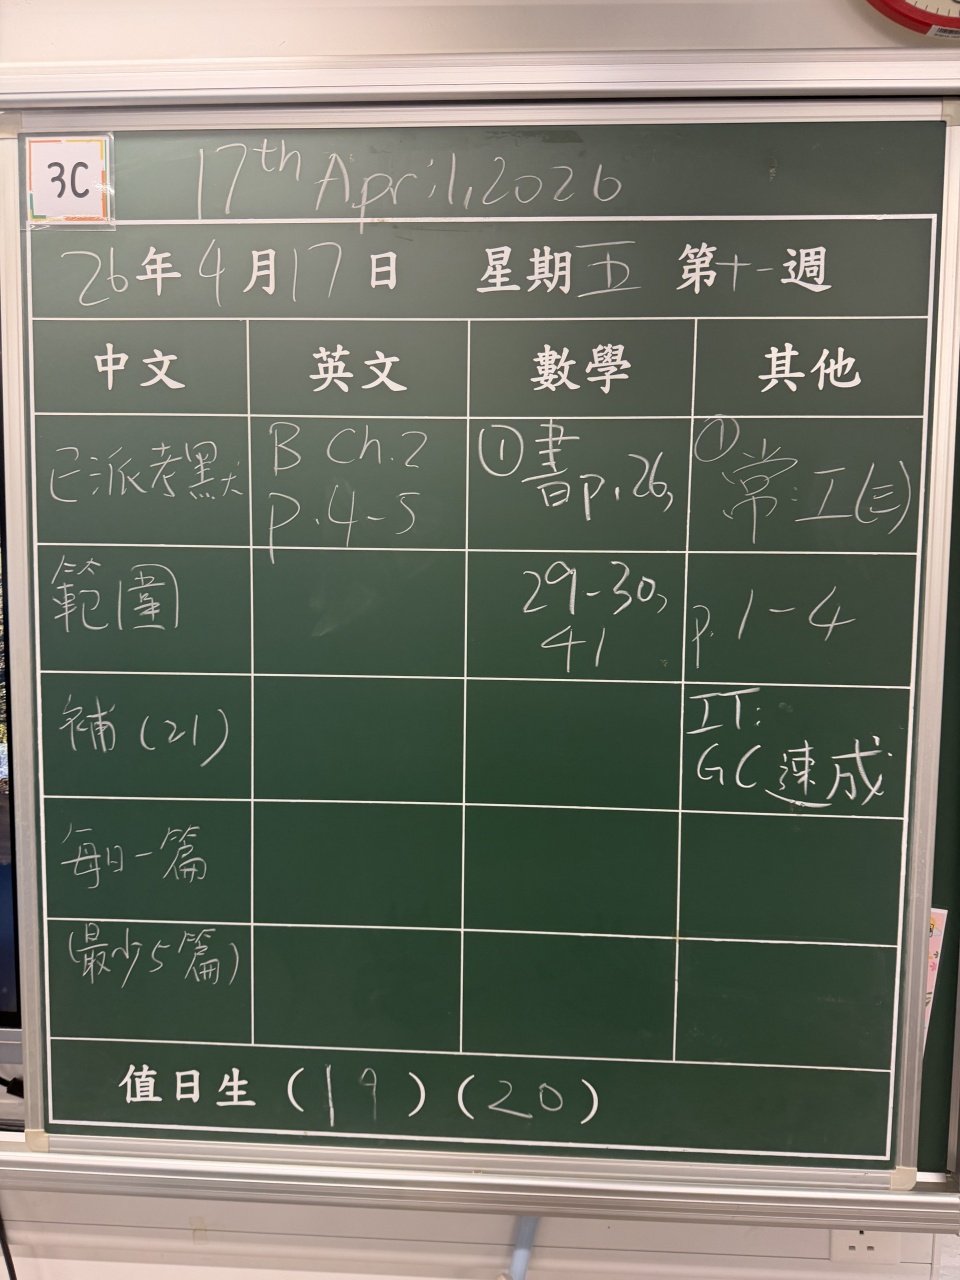 3C
17th April, 2026
26年4月17日 星期五 第十一週
中文 英文 數學 其他
已派考默
範圍
補(21)
每日一篇
(最少5篇)
B Ch.2
p.4-5
①書p.26,
29-30,
41
①常:工(三)
p.1-4
IT:
GC速成
值日生(19)(20)